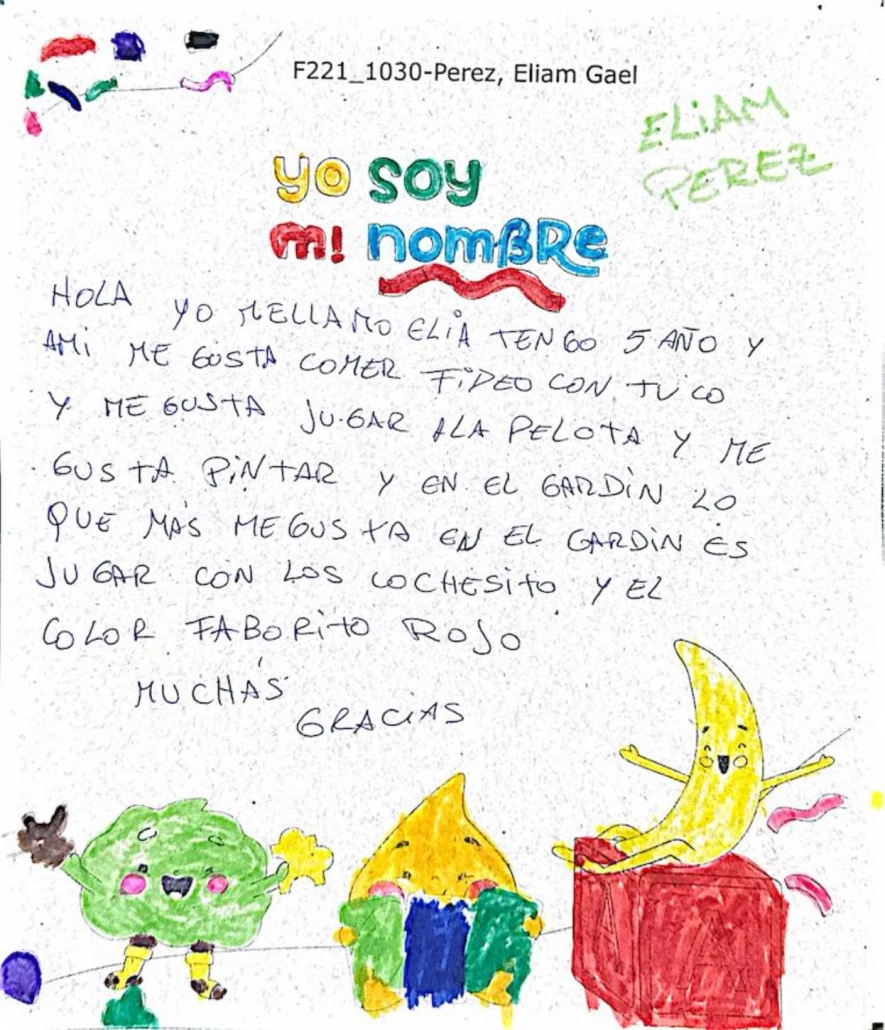 F221_1030-Perez, Eliam Gael
ELIAM
PEREZ
yo soy
mi nomBRe
HOLA YO MELLAMO ELIA TENGO 5 AÑO Y
AMI ME GUSTA COMER FIDEO CON TUCO
Y ME GUSTA JUGAR ALA PELOTA Y ME
GUSTA PINTAR Y EN EL GARDIN LO
QUE MÁS ME GUSTA EN EL GARDIN ES
JUGAR CON LOS COCHESITO Y EL
COLOR FABORITO ROJO
MUCHÁS
GRACIAS
A A